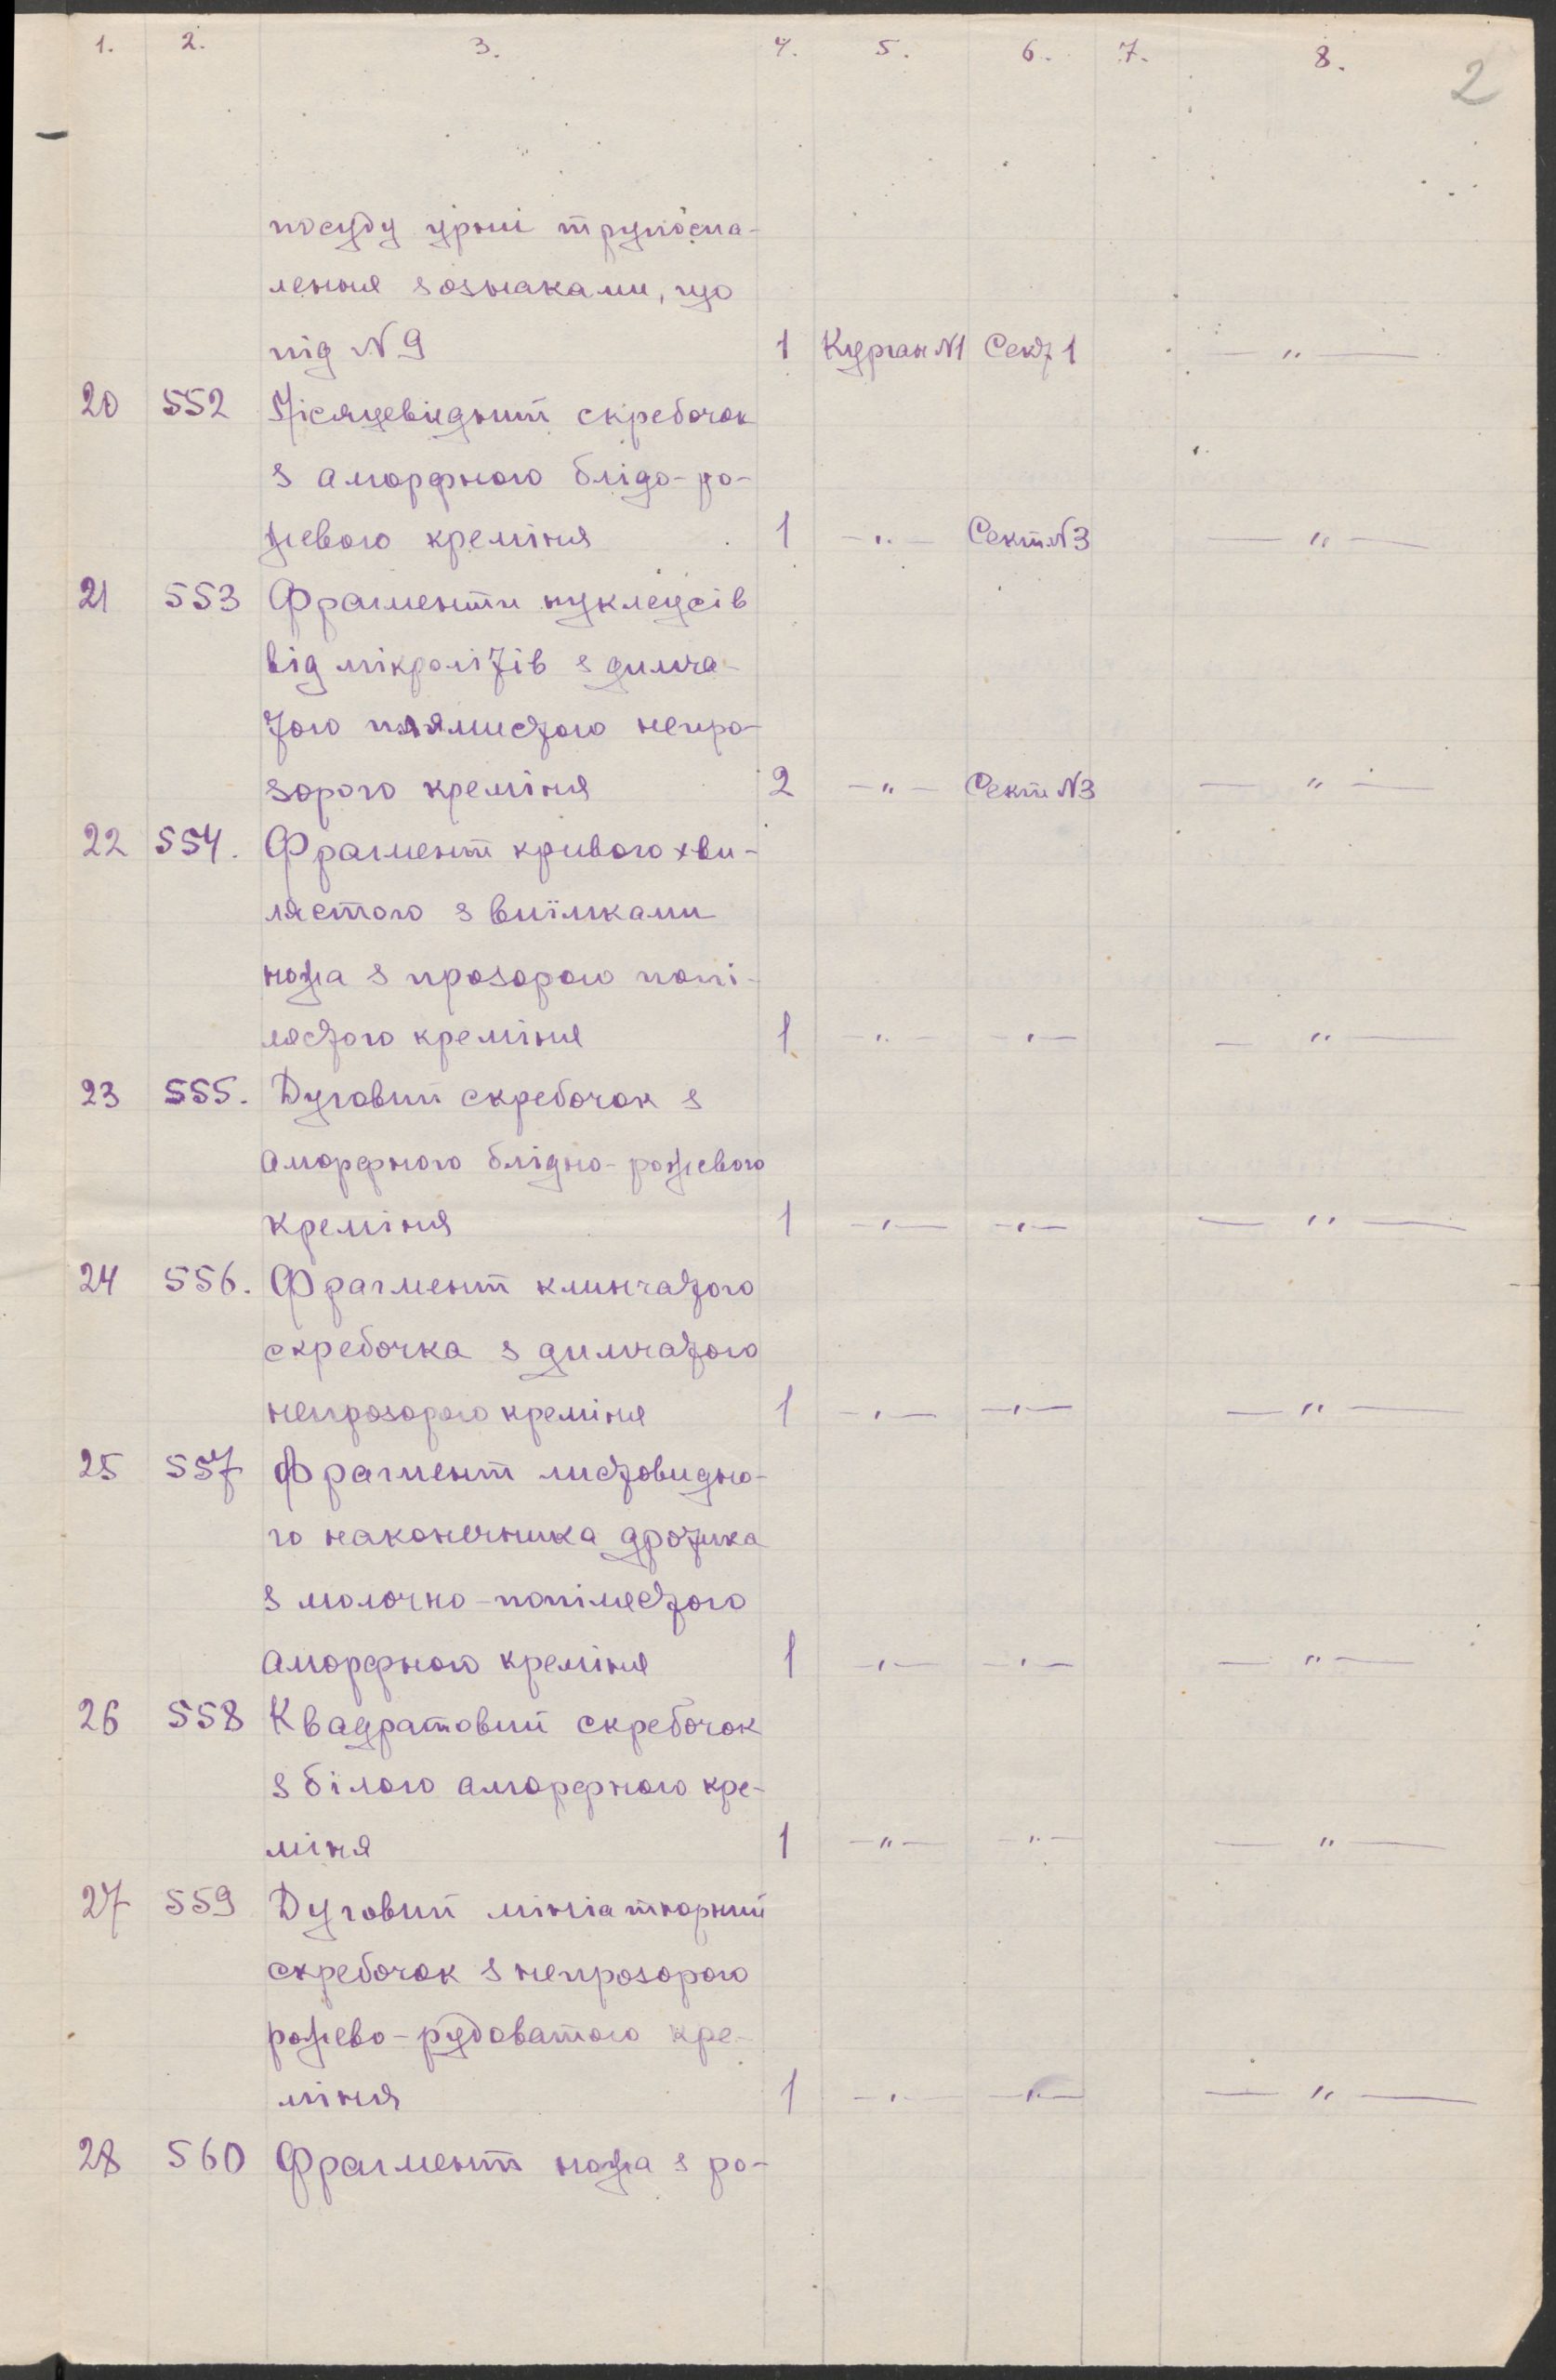 1. 2. 3. 4. 5. 6. 7. 8.
2
посуду урни трупоспа-
лення з ознаками, що
під N 9 1 Курган N1 Сект 1 — " —
20 552 Місяцевидний скребочок
з аморфного блідо-ро-
жевого креміня 1 — " — Сект. N3 — " —
21 553 Фрагменти нуклеусів
від мікролітів з димча-
того плямистого непро-
зорого креміня 2 — " — Сект N3 — " —
22 554. Фрагмент кривого хви-
лястого з виїмками
ножа з прозорого попі-
лястого креміня 1 — " — — " — — " —
23 555. Дуговий скребочок з
аморфного блідно-рожевого
креміня 1 — " — — " — — " —
24 556. Фрагмент клинчатого
скребочка з димчатого
непрозорого креміня 1 — " — — " — — " —
25 557 Фрагмент листовидно-
го наконечника дротика
з молочно-попілястого
аморфного креміня 1 — " — — " — — " —
26 558 Квадратовий скребочок
з білого аморфного кре-
міня 1 — " — — " — — " —
27 559 Дуговий мініатюрний
скребочок з непрозорого
рожево-рудоватого кре-
міня 1 — " — — " — — " —
28 560 Фрагмент ножа з ро-